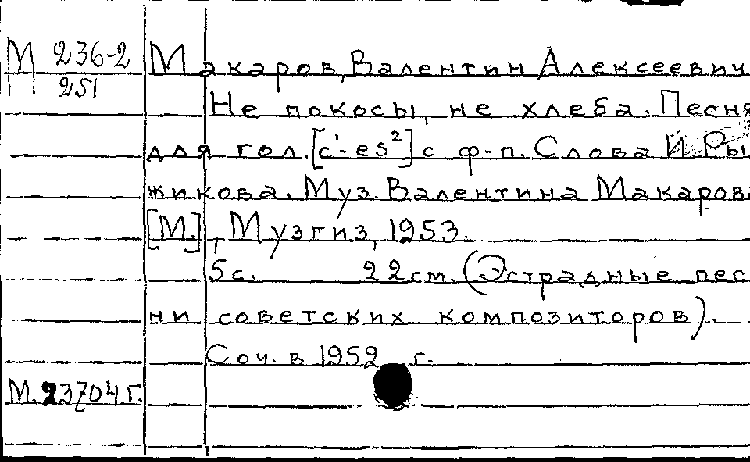 М 236-2 Макаров, Валентин Алексеевич
251
Не покосы, не хлеба. Песня
для гол. [c¹-es²] с ф-п. Слова И. Ры
жикова. Муз. Валентина Макарова
[М.], Музгиз, 1953.
5с. 22см. (Эстрадные пес
ни советских композиторов).
Соч. в 1952 г.
М. 23704 г.